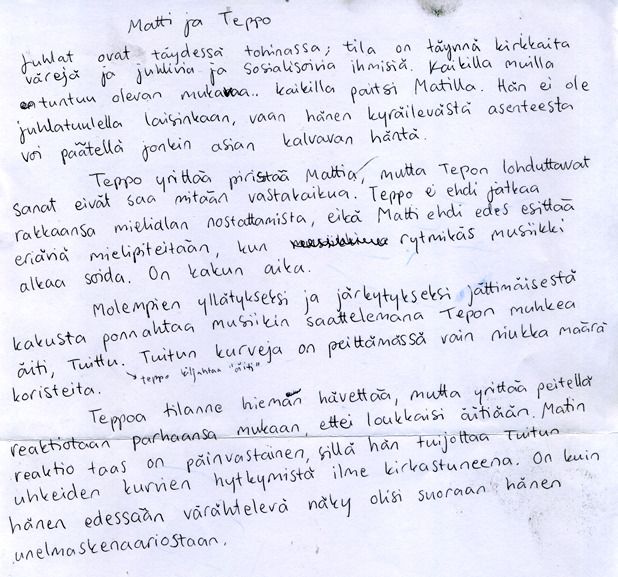 Matti ja Teppo
Juhlat ovat täydessä tohinassa; tila on täynnä kirkkaita
värejä ja juhlivia ja sosialisoivia ihmisiä. Kaikilla muilla
tuntuu olevan mukavaa.. kaikilla paitsi Matilla. Hän ei ole
juhlatuulella laisinkaan, vaan hänen kyräilevästä asenteesta
voi päätellä jonkin asian kalvavan häntä.
Teppo yrittää piristää Mattia, mutta Tepon lohduttavat
sanat eivät saa mitään vastakaikua. Teppo ei ehdi jatkaa
rakkaansa mielialan nostattamista, eikä Matti ehdi edes esittää
eriäviä mielipiteitään, kun rytmikäs musiikki
alkaa soida. On kakun aika.
Molempien yllätykseksi ja järkytykseksi jättimäisestä
kakusta ponnahtaa musiikin saattelemana Tepon muhkea
äiti, Tuittu. Tuitun kurveja on peittämässä vain niukka määrä
koristeita.
→ teppo kiljahtaa "äiti"
Teppoa tilanne hieman hävettää, mutta yrittää peitellä
reaktiotaan parhaansa mukaan, ettei loukkaisi äitiään. Matin
reaktio taas on päinvastainen, sillä hän tuijottaa Tuitun
uhkeiden kurvien hytkymistä ilme kirkastuneena. On kuin
hänen edessään värähtelevä näky olisi suoraan hänen
unelmaskenaariostaan.